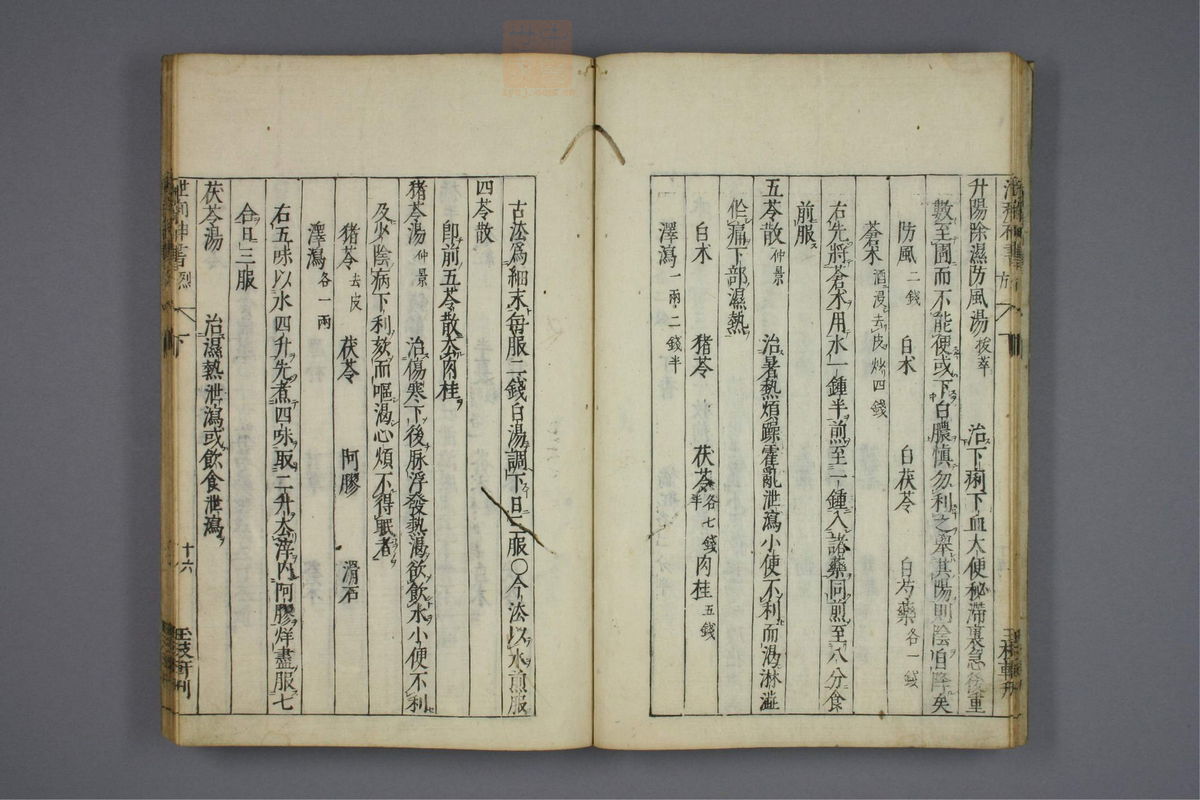 升陽除濕防風湯 拔萃 治下痢下血大便秘滯裏急後重
數至圊而不能便或下白膿慎勿利之舉其陽則陰自降矣
防風 二錢 白朮 白茯苓 白芍藥 各一錢
蒼朮 酒浸去皮炒四錢
右先將蒼朮用水一鍾半煎至一鍾入諸藥同煎至八分食
前服
五苓散 仲景 治暑熱煩躁霍亂泄瀉小便不利而渴淋澁
作痛下部濕熱
白朮 猪苓 茯苓 各七錢半 肉桂 五錢
澤瀉 一兩二錢半
古法爲細末每服二錢白湯調下日三服○今法以水煎服
四苓散
卽前五苓散去肉桂
猪苓湯 仲景 治傷寒下後脉浮發熱渴欲飮水小便不利
及少陰病下利欬而嘔渴心煩不得眠者
猪苓 去皮 茯苓 阿膠 滑石
澤瀉 各一兩
右五味以水四升先煮四味取二升去滓內阿膠烊盡服七
合日三服
茯苓湯 治濕熱泄瀉或飮食泄瀉
十六